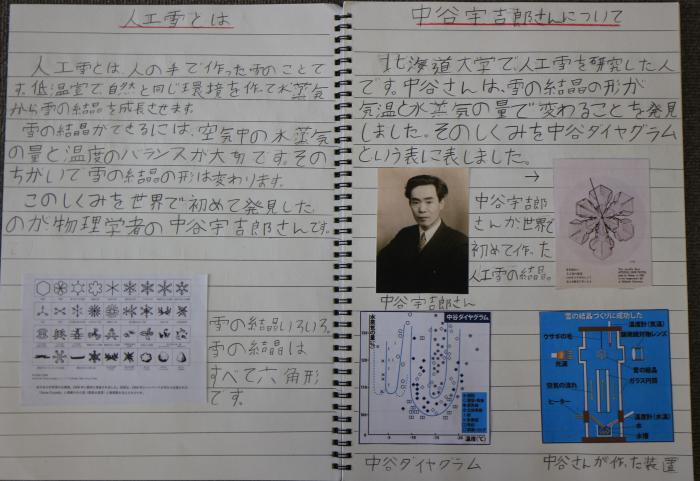 人工雪とは
人工雪とは、人の手で作った雪のことで
す。低温室で自然と同じ環境を作って水蒸気
から雪の結晶を成長させます。
雪の結晶ができるには、空気中の水蒸気
の量と温度のバランスが大切です。その
ちがいで雪の結晶の形は変わります。
このしくみを世界で初めて発見した
のが物理学者の中谷宇吉郎さんです。
雪の結晶いろいろ。
雪の結晶は
すべて六角形
です。
中谷宇吉郎さんについて
北海道大学で人工雪を研究した人
です。中谷さんは、雪の結晶の形が
気温と水蒸気の量で変わることを発見
しました。そのしくみを中谷ダイヤグラム
という表に表しました。
→
中谷宇吉郎
さんが世界で
初めて作った
人工雪の結晶。
中谷宇吉郎さん
中谷ダイヤグラム
水蒸気の量(%)
温度(℃)
中谷ダイヤグラム
雪の結晶づくりに成功した
温度計(気温)
ウサギの毛
顕微鏡対物レンズ
光源
雪の結晶
ガラス円筒
空気の流れ
ヒーター
温度計(水温)
水
水槽
中谷さんが作った装置